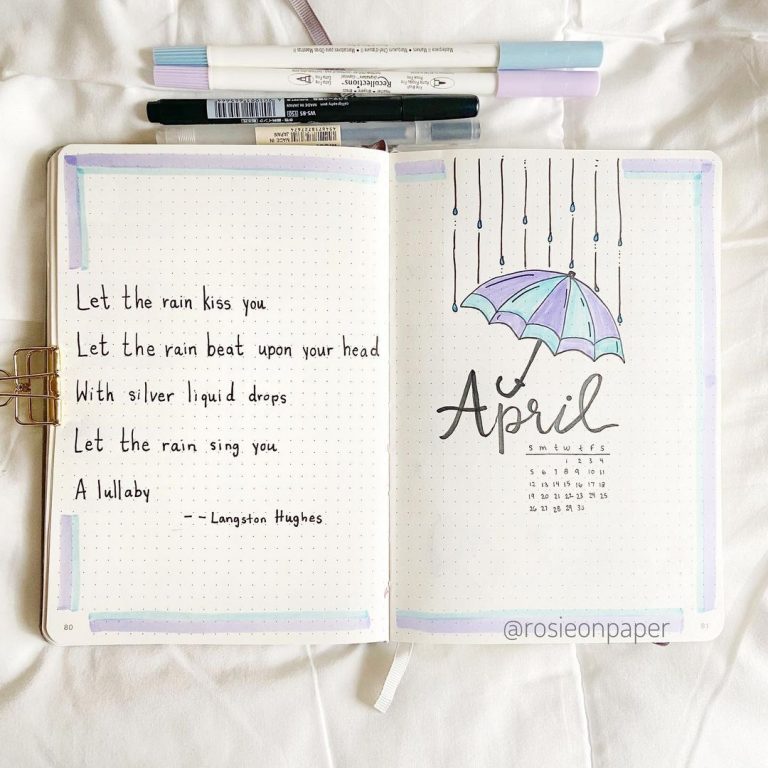 Recollections
WS-BS
MADE IN JAPAN
Let the rain kiss you
Let the rain beat upon your head
With silver liquid drops
Let the rain sing you
A lullaby
-- Langston Hughes
80
April
S m t w t f s
1 2 3 4
5 6 7 8 9 10 11
12 13 14 15 16 17 18
19 20 21 22 23 24 25
26 27 28 29 30
@rosieonpaper
81